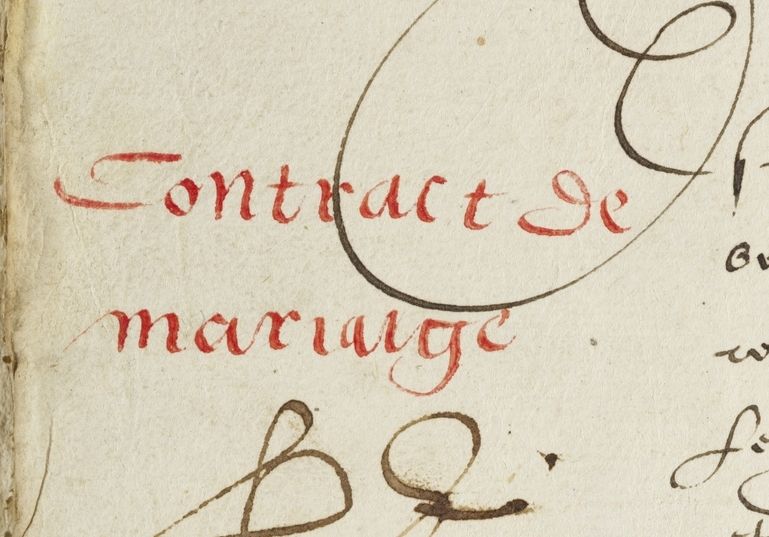 Contract de
mariaige